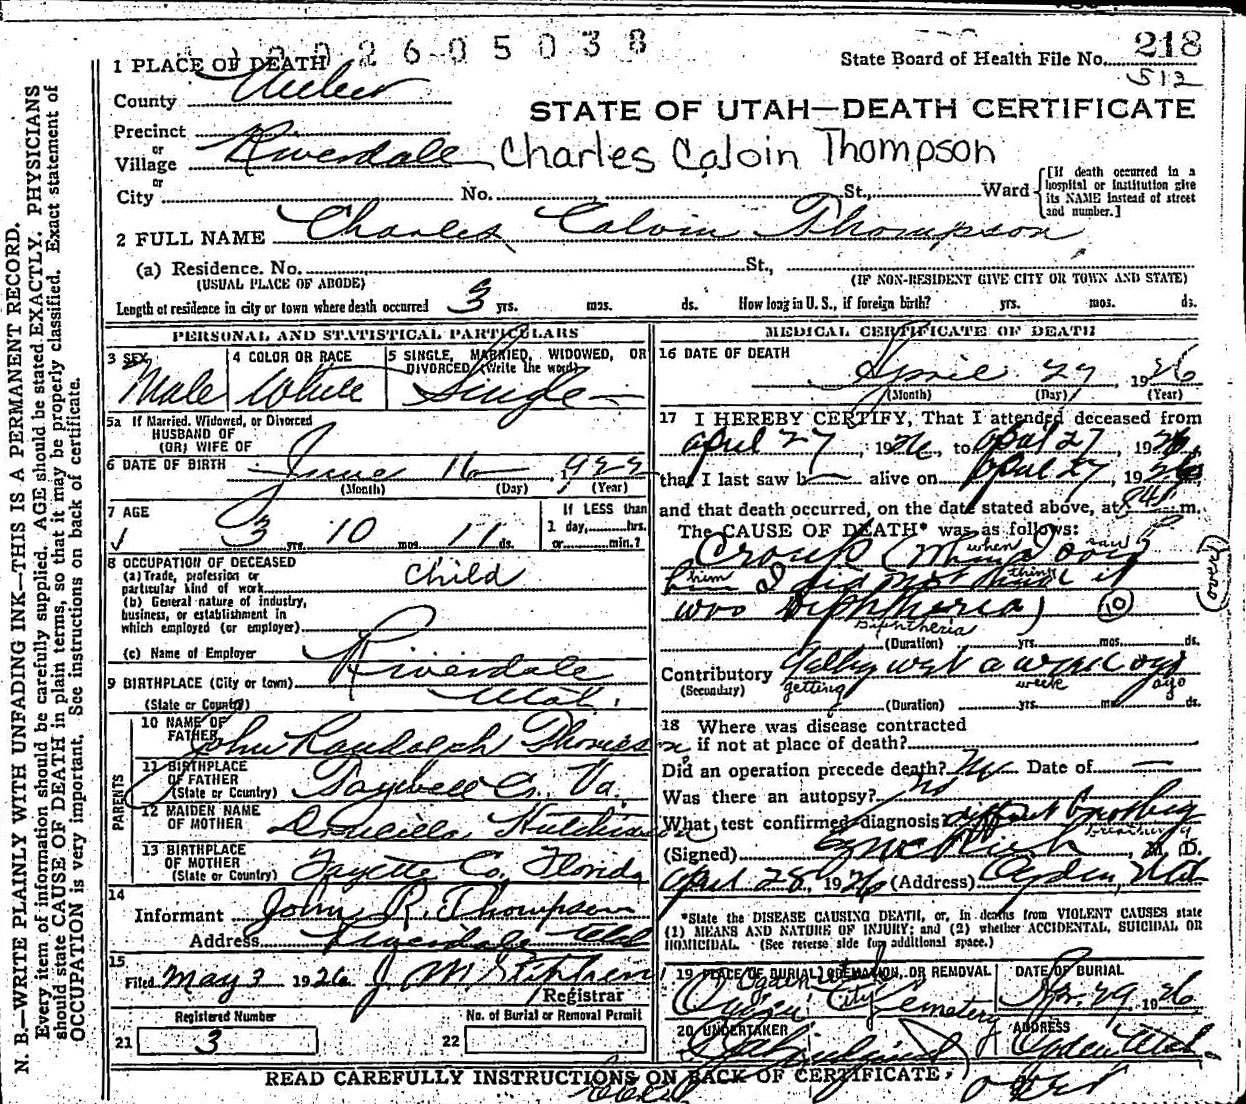 0026-05038
State Board of Health File No. 218
512
1 PLACE OF DEATH
County Weber
STATE OF UTAH—DEATH CERTIFICATE
Precinct
or
Village Riverdale Charles Calvin Thompson
or
City No. St., Ward
[If death occurred in a hospital or institution give its NAME instead of street and number.]
2 FULL NAME Charles Calvin Thompson
(a) Residence. No. St.,
(USUAL PLACE OF ABODE) (IF NON-RESIDENT GIVE CITY OR TOWN AND STATE)
Length of residence in city or town where death occurred 3 yrs. mos. ds. How long in U. S., if foreign birth? yrs. mos. ds.
PERSONAL AND STATISTICAL PARTICULARS
3 SEX Male
4 COLOR OR RACE White
5 SINGLE, MARRIED, WIDOWED, OR DIVORCED (Write the word) Single
5a If Married, Widowed, or Divorced
HUSBAND OF
(OR) WIFE OF
6 DATE OF BIRTH June 16, 1922
(Month) (Day) (Year)
7 AGE 3 yrs. 10 mos. 11 ds.
If LESS than
1 day, hrs.
or min.?
8 OCCUPATION OF DECEASED
(a) Trade, profession or
particular kind of work child
(b) General nature of industry,
business, or establishment in
which employed (or employer)
(c) Name of Employer
9 BIRTHPLACE (City or town) Riverdale
(State or Country) Utah.
PARENTS
10 NAME OF FATHER John Randolph Thompson
11 BIRTHPLACE OF FATHER (State or Country) Tazwell Co., Va.
12 MAIDEN NAME OF MOTHER Drucilla Hutchinson
13 BIRTHPLACE OF MOTHER (State or Country) Fayette Co., Florida
14
Informant John R. Thompson
Address Riverdale Utah
15
Filed May 3 1926 J. M. Stephens
Registrar
Registered Number
21 3
No. of Burial or Removal Permit
22
MEDICAL CERTIFICATE OF DEATH
16 DATE OF DEATH
April 27, 1926
(Month) (Day) (Year)
17 I HEREBY CERTIFY, That I attended deceased from
April 27, 1926, to April 27, 1926,
that I last saw h alive on April 27, 1926
and that death occurred, on the date stated above, at m.
The CAUSE OF DEATH* was as follows:
when saw
Croup (
him I did not think it
was Diphtheria) 10
Diphtheria
(over)
(Duration) yrs. mos. ds.
Contributory
(Secondary) getting week ago
(Duration) yrs. mos. ds.
18 Where was disease contracted
if not at place of death?
Did an operation precede death? No Date of —
Was there an autopsy? No
What test confirmed diagnosis? difficult breathing
breathing
(Signed) M. D.
April 28, 1926 (Address) Ogden, Utah
*State the DISEASE CAUSING DEATH, or, in deaths from VIOLENT CAUSES state
(1) MEANS AND NATURE OF INJURY; and (2) whether ACCIDENTAL, SUICIDAL OR
HOMICIDAL. (See reverse side for additional space.)
19 PLACE OF BURIAL, CREMATION, OR REMOVAL
Ogden City Cemetery
DATE OF BURIAL
Apr. 29, 1926
20 UNDERTAKER
ADDRESS
Ogden Utah
READ CAREFULLY INSTRUCTIONS ON BACK OF CERTIFICATE.
N. B.—WRITE PLAINLY WITH UNFADING INK—THIS IS A PERMANENT RECORD.
Every item of information should be carefully supplied. AGE should be stated EXACTLY. PHYSICIANS
should state CAUSE OF DEATH in plain terms, so that it may be properly classified. Exact statement of
OCCUPATION is very important. See instructions on back of certificate.